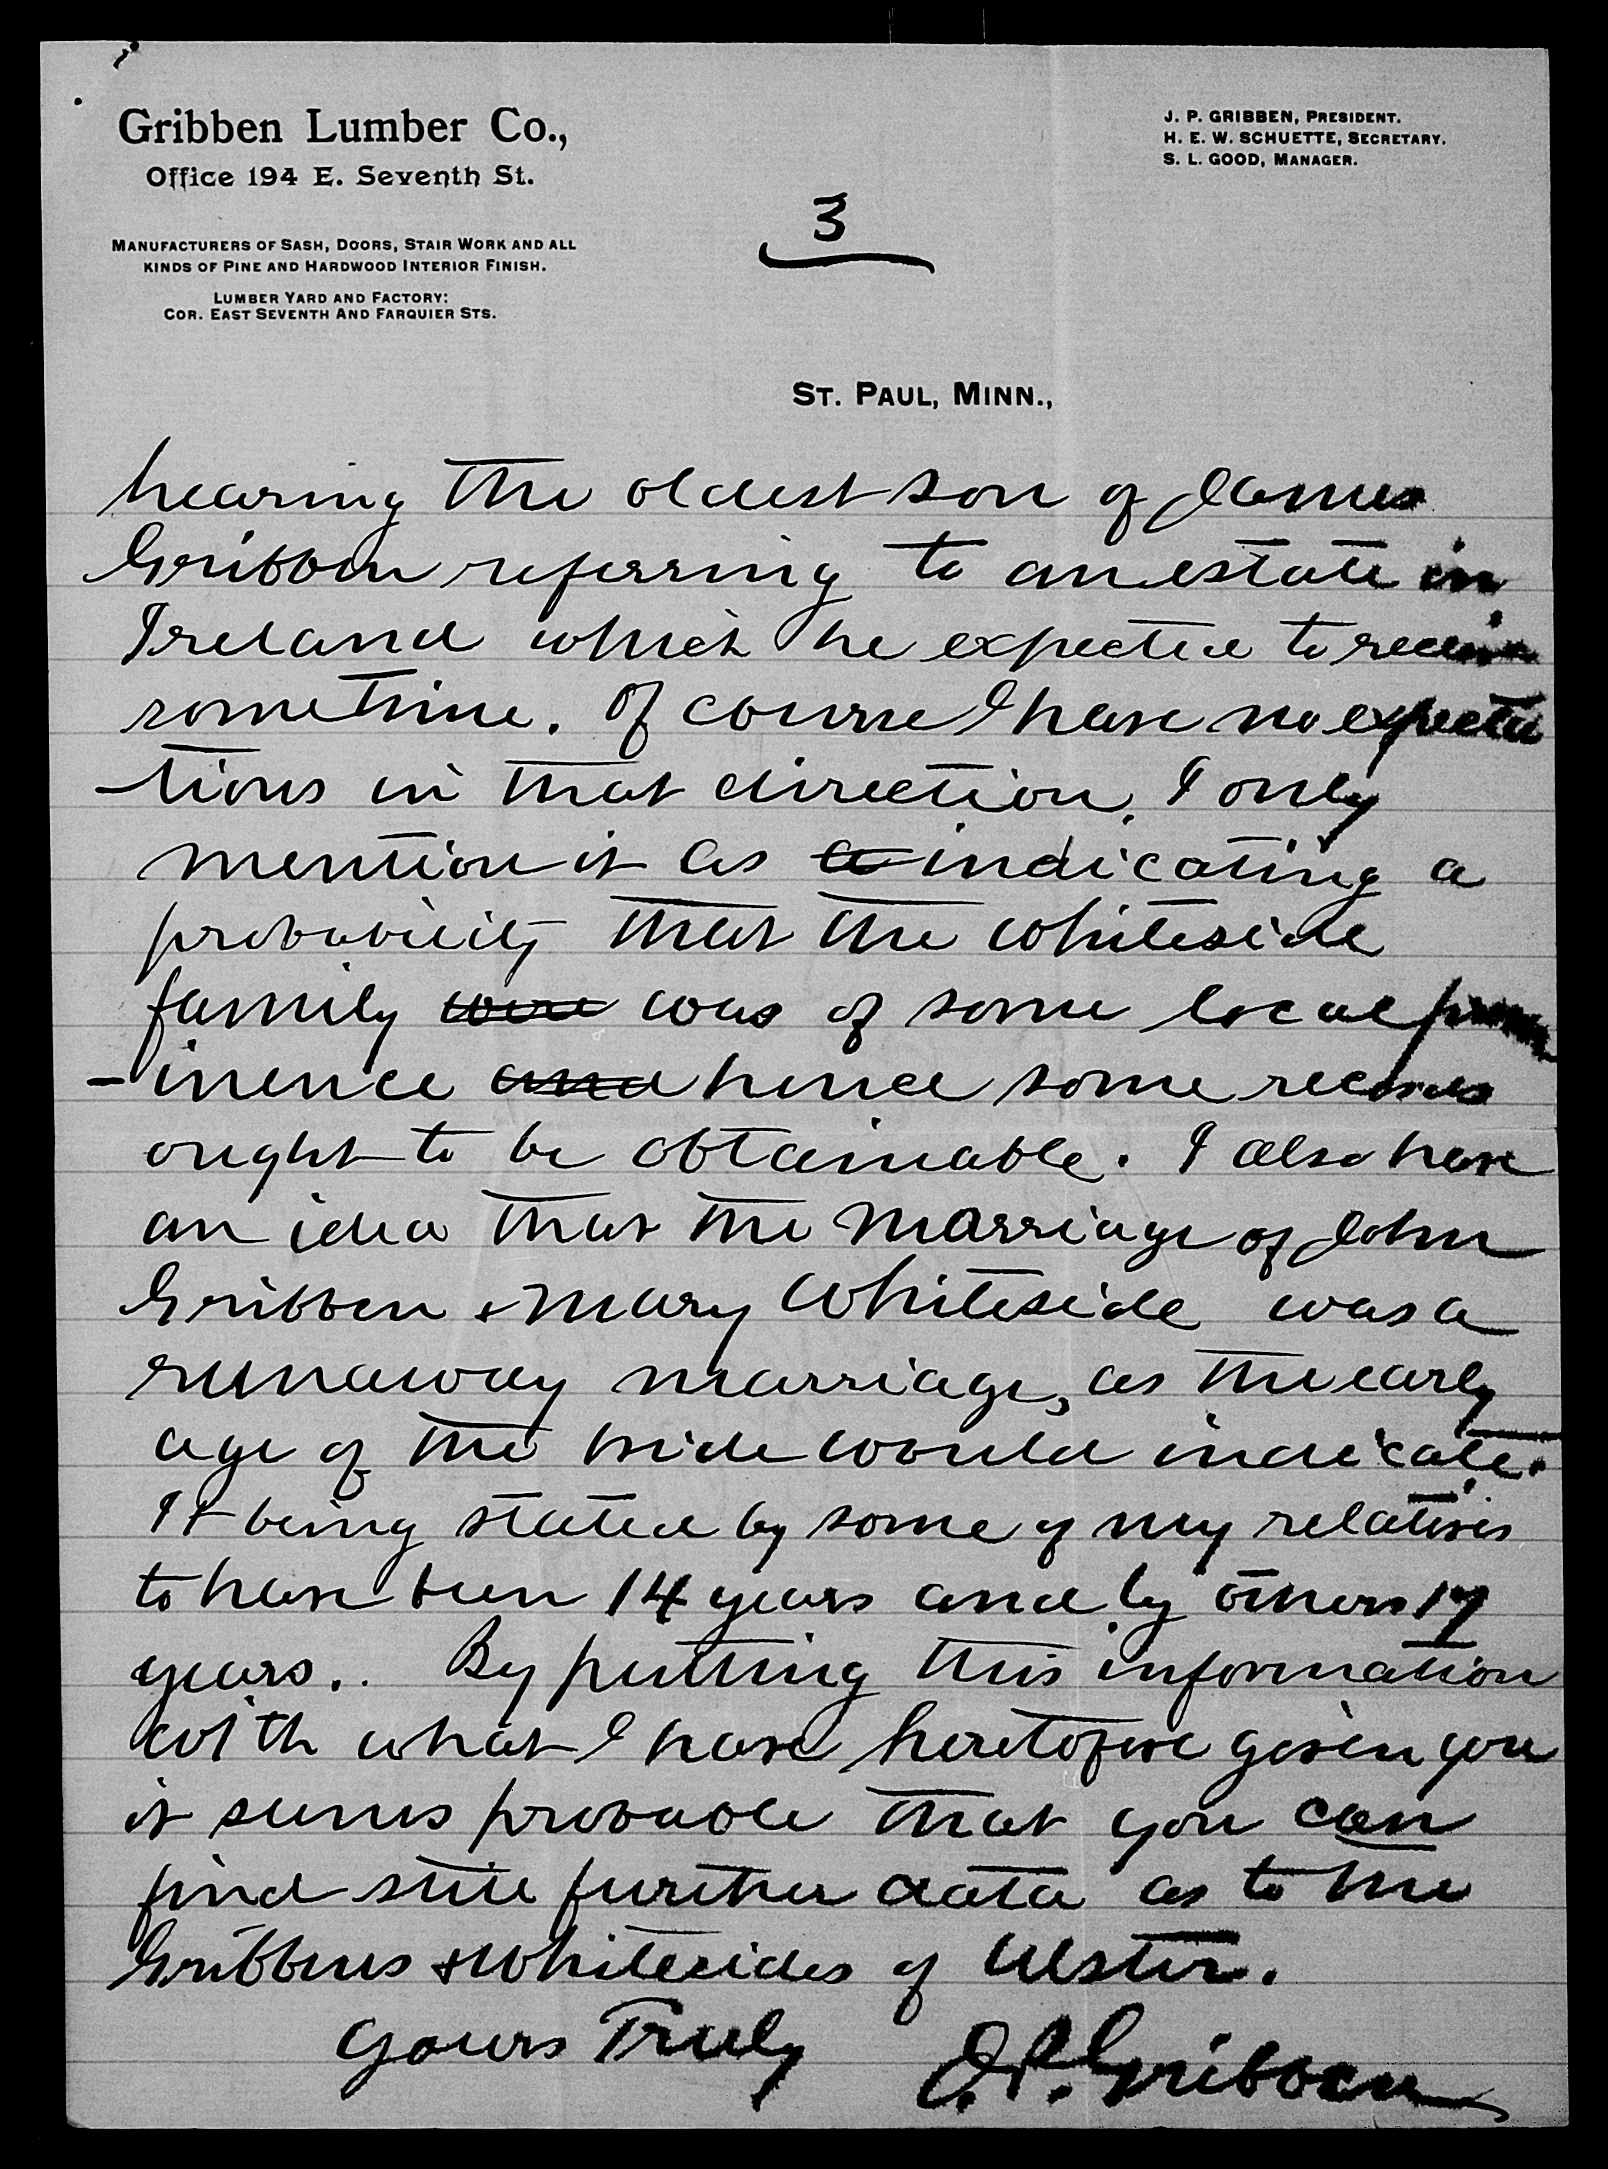 Gribben Lumber Co.,
Office 194 E. Seventh St.
MANUFACTURERS OF SASH, DOORS, STAIR WORK AND ALL
KINDS OF PINE AND HARDWOOD INTERIOR FINISH.
LUMBER YARD AND FACTORY:
COR. EAST SEVENTH AND FARQUIER STS.
J. P. GRIBBEN, PRESIDENT.
H. E. W. SCHUETTE, SECRETARY.
S. L. GOOD, MANAGER.
3
ST. PAUL, MINN.,
hearing the oldest son of James
Gribben referring to an estate in
Ireland which he expected to receive
sometime. Of course I have no expecta
-tions in that direction, I only
mention it as a indicating a
probability that the Whiteside
family were was of some local prom
-inence and hence some records
ought to be obtainable. I also have
an idea that the marriage of John
Gribben & Mary Whiteside was a
runaway marriage, as the early
age of the bride would indicate.
It being stated by some of my relatives
to have been 14 years and by others 17
years.. By putting this information
with what I have heretofore given you
it seems probable that you can
find still further data as to the
Gribbens & Whitesides of Ulster.
Yours Truly J. P. Gribben